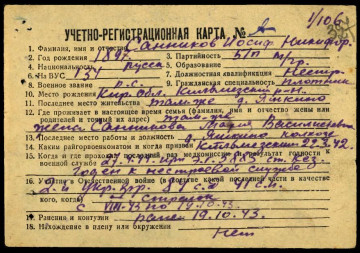 1/106
УЧЕТНО-РЕГИСТРАЦИОННАЯ КАРТА № А
1. Фамилия, имя и отчество Санников Иосиф Никифор.
2. Год рождения 1897 3. Партийность б/п
4. Национальность русск 5. Образование
6. № ВУС 134 7. Должностная квалификация
8. Военное звание р.с. 9. Гражданская специальность Плотник
10. Место рождения Кир. обл. Кильмезский р-он
11. Последнее место жительства там-же д.
12. Где проживает в настоящее время семья (фамилия, имя и отчество жены или
родителей и точный их адрес) там-же
жена Санникова Мария Васильевна
13. Последнее место работы и должность колхоз
14. Каким райгорвоенкоматом и когда призван Кильмезским 22.3.42.
15. Когда и где проходил последний раз медкомиссию и результат годности к
военной службе
годен к нестроевой службе
16. Участие в Отечественной войне (в составе какой последней части в качестве
кого, когда) 2-й Укр. фр.
стрелок
с VIII-43 по 19.10.43.
17. Ранения и контузии ранен 19.10.43.
18. Нахождение в плену или окружении нет